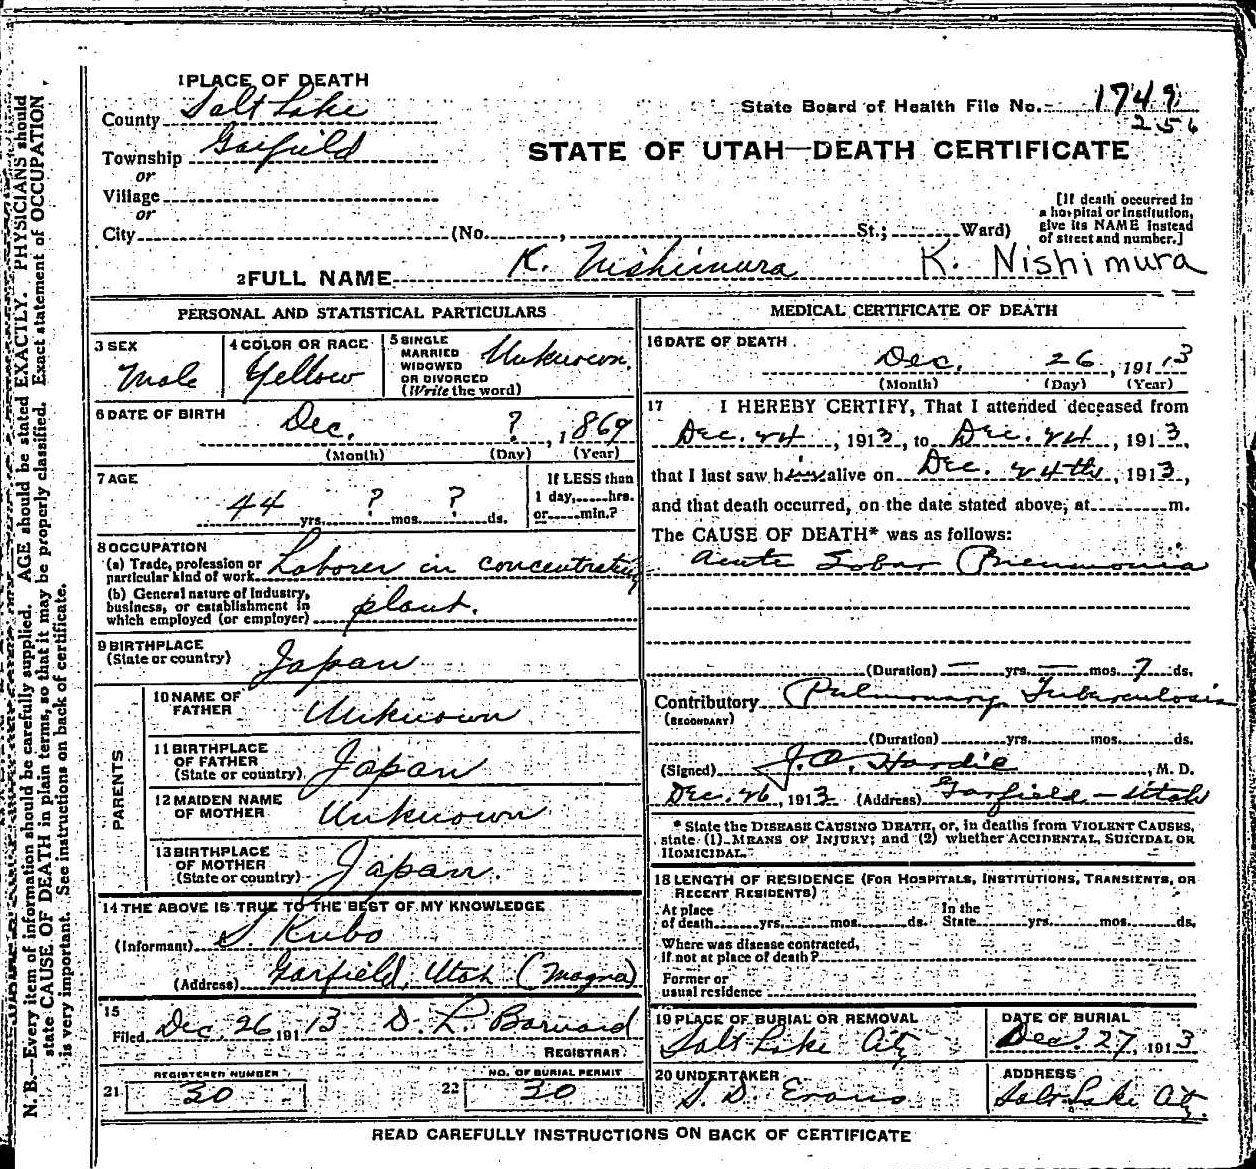 1 PLACE OF DEATH
County Salt Lake
State Board of Health File No. 1749
256
Township Garfield
or
STATE OF UTAH—DEATH CERTIFICATE
Village
or
City (No. , St.; Ward)
[If death occurred in
a hospital or institution,
give its NAME instead
of street and number.]
2 FULL NAME K. Nishimura K. Nishimura
PERSONAL AND STATISTICAL PARTICULARS
3 SEX
Male
4 COLOR OR RACE
Yellow
5 SINGLE
MARRIED
WIDOWED
OR DIVORCED
(Write the word)
Unknown.
6 DATE OF BIRTH
Dec. ? , 1869
(Month) (Day) (Year)
7 AGE
44 yrs. ? mos. ? ds.
If LESS than
1 day, hrs.
or min.?
8 OCCUPATION
(a) Trade, profession or
particular kind of work Laborer in concentrating
(b) General nature of Industry,
business, or establishment in
which employed (or employer) plant.
9 BIRTHPLACE
(State or country) Japan
PARENTS
10 NAME OF
FATHER Unknown
11 BIRTHPLACE
OF FATHER
(State or country) Japan
12 MAIDEN NAME
OF MOTHER Unknown
13 BIRTHPLACE
OF MOTHER
(State or country) Japan.
14 THE ABOVE IS TRUE TO THE BEST OF MY KNOWLEDGE
(Informant) S. Kubo
(Address) Garfield, Utah (Magna)
15
Filed Dec. 26 191 13 D. L. Barnard
REGISTRAR
REGISTERED NUMBER
21 30
NO. OF BURIAL PERMIT
22 30
MEDICAL CERTIFICATE OF DEATH
16 DATE OF DEATH
Dec. 26 , 191 13
(Month) (Day) (Year)
17 I HEREBY CERTIFY, That I attended deceased from
Dec. 24 , 1913, to Dec. 24 , 1913,
that I last saw him alive on Dec. 24th , 1913,
and that death occurred, on the date stated above, at m.
The CAUSE OF DEATH* was as follows:
Acute Lobar Pneumonia
(Duration) — yrs. — mos. 7 ds.
Contributory Pulmonary Tuberculosis
(SECONDARY)
(Duration) yrs. mos. ds.
(Signed) J. A. Hardie , M. D.
Dec. 26, 1913 (Address) Garfield - Utah
* State the DISEASE CAUSING DEATH, or, in deaths from VIOLENT CAUSES,
state (1) MEANS OF INJURY; and (2) whether ACCIDENTAL, SUICIDAL OR
HOMICIDAL.
18 LENGTH OF RESIDENCE (FOR HOSPITALS, INSTITUTIONS, TRANSIENTS, OR
RECENT RESIDENTS)
At place In the
of death yrs. mos. ds. State yrs. mos. ds.
Where was disease contracted,
If not at place of death?
Former or
usual residence
19 PLACE OF BURIAL OR REMOVAL
Salt Lake City
DATE OF BURIAL
Dec. 27, 1913
20 UNDERTAKER
S. D. Evans
ADDRESS
Salt Lake City.
READ CAREFULLY INSTRUCTIONS ON BACK OF CERTIFICATE
N. B.—Every item of information should be carefully supplied. AGE should be stated EXACTLY. PHYSICIANS should
state CAUSE OF DEATH in plain terms, so that it may be properly classified. Exact statement of OCCUPATION
is very important. See instructions on back of certificate.